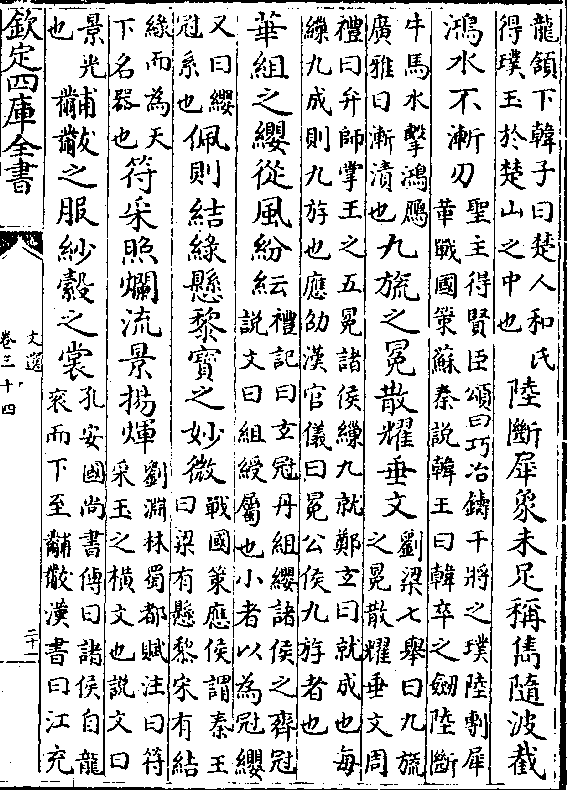 龍頷下韓子曰楚人和氏
得璞玉於楚山之中也
陸斷犀象未足稱雋隨波截
鴻水不漸刃
聖主得賢臣頌曰巧冶鑄干將之璞陸剸犀
革戰國策蘇秦說韓王曰韓卒之劒陸斷
牛馬水擊鴻鴈
廣雅曰漸漬也
九旒之冕散耀垂文
劉梁七舉曰九旒
之冕散耀垂文周
禮曰弁師掌王之五冕諸侯繅九就鄭玄曰就成也每
繅九成則九斿也應劭漢官儀曰冕公侯九斿者也
華組之纓從風紛紜
禮記曰玄冠丹組纓諸侯之齊冠
說文曰組綬屬也小者以為冠纓
又曰纓
冠系也
佩則結綠懸黎寶之妙微
戰國策應侯謂秦王
曰梁有懸黎宋有結
綠而為天
下名器也
符采照爛流景揚煇
劉淵林蜀都賦注曰符
采玉之橫文也說文曰
景光
也
黼黻之服紗縠之裳
孔安國尚書傳曰諸侯自龍
衮而下至黼黻漢書曰江充
欽定四庫全書
文選
卷三十四